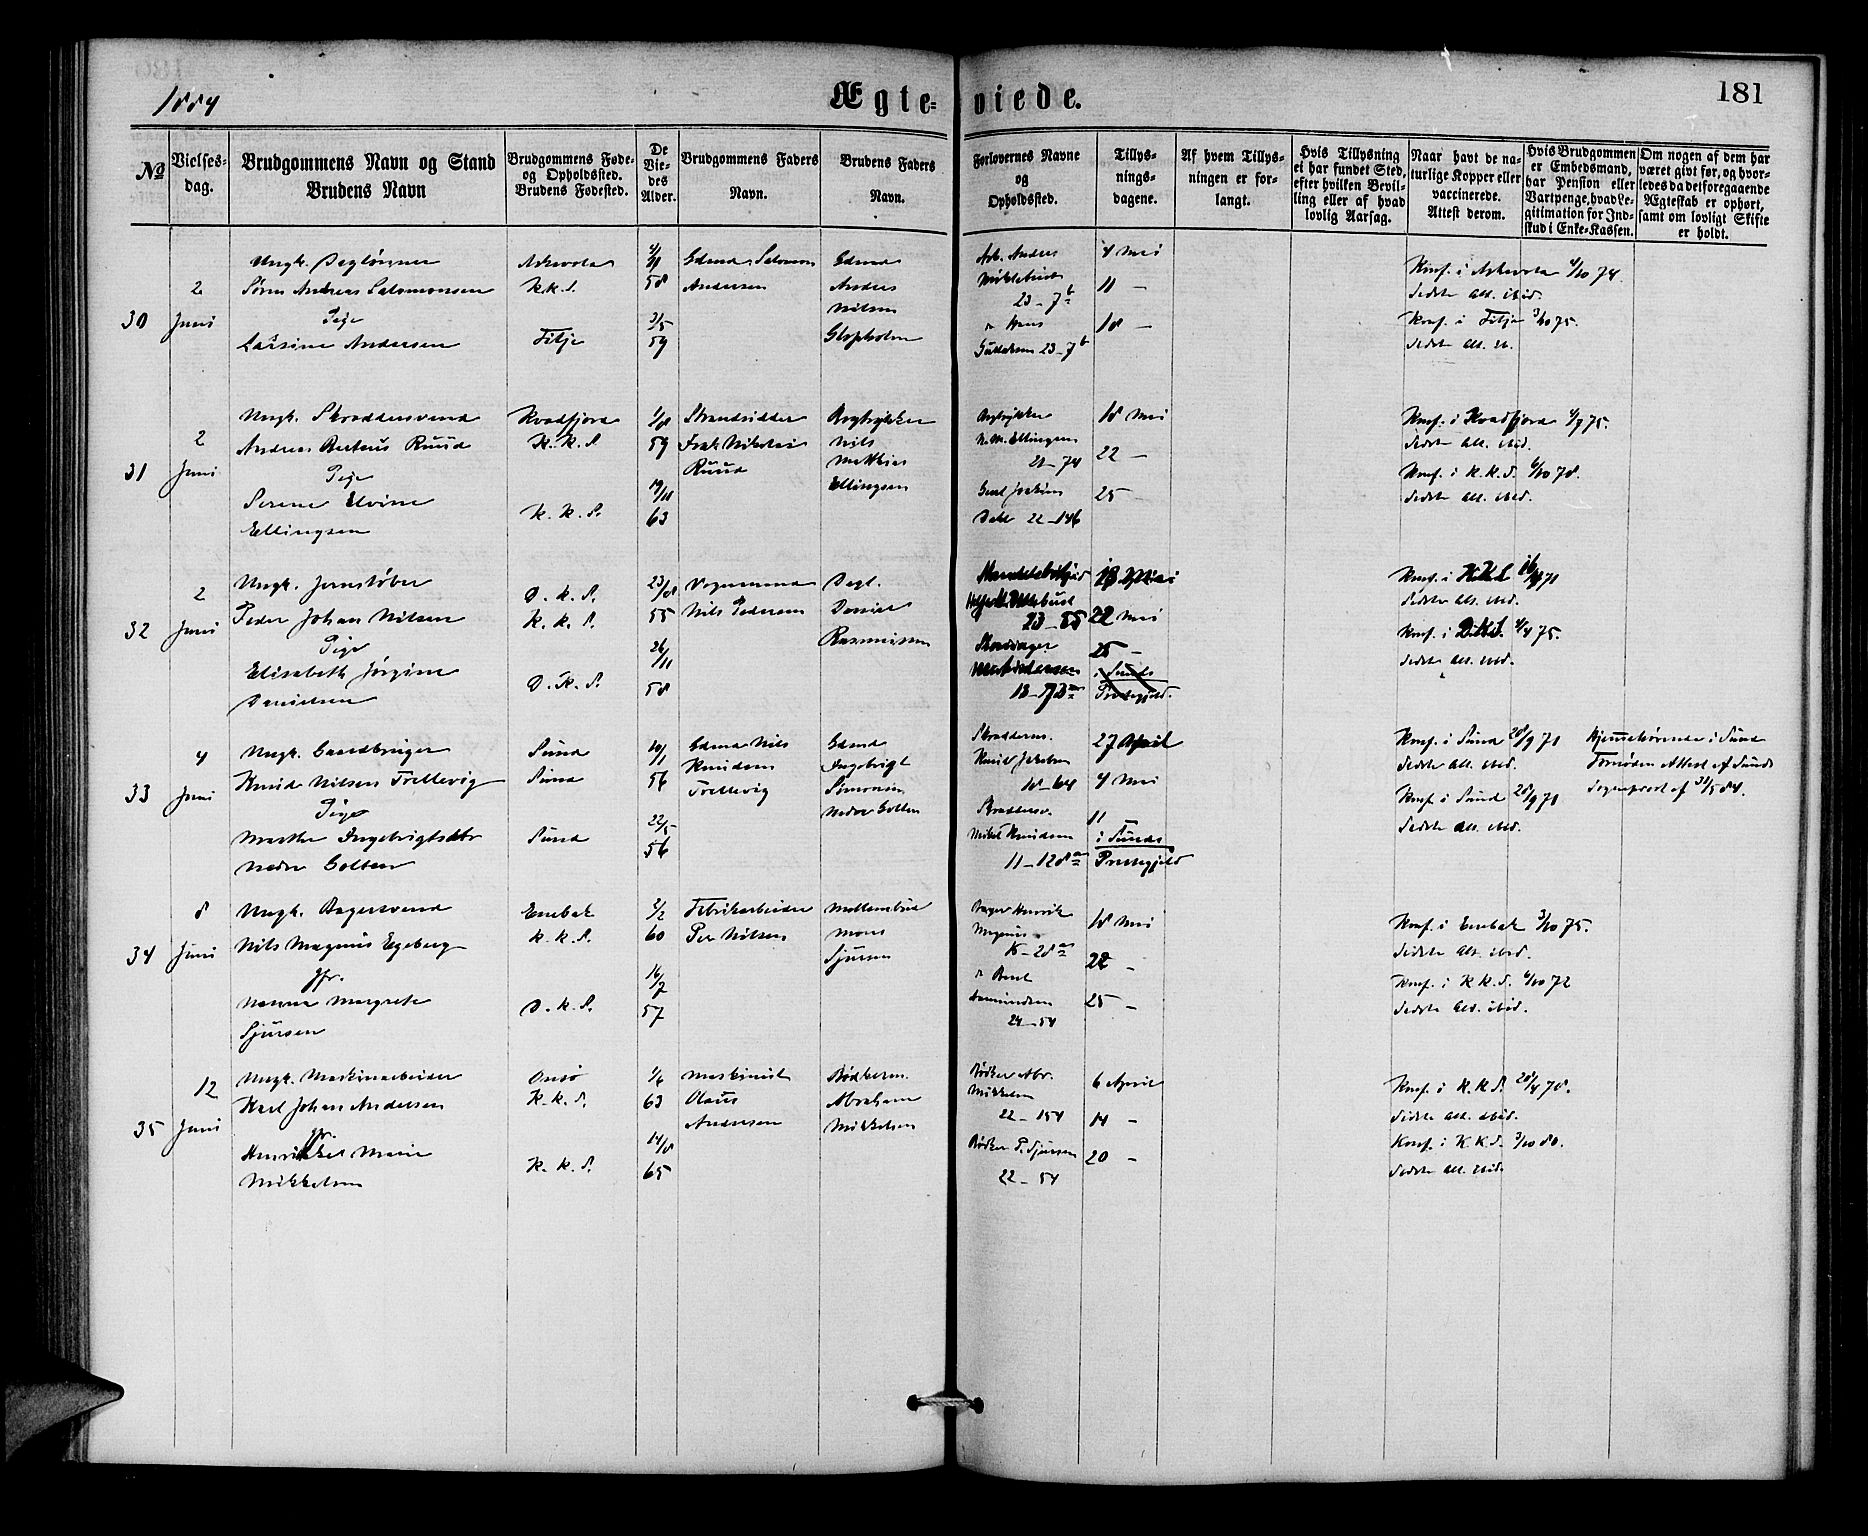 1884
Ægteviede.
181
No
Vielsesdag.
Brudgommens Navn og Stand
Brudens Navn
Brudgommens Føde- og Opholdssted.
Brudens Fødested.
De Viedes Alder.
Brudgommens Faders Navn.
Brudens Faders Navn.
Forlovernes Navne og Opholdssted.
Tillysningsdagene.
Af hvem Tillysningen er forlangt.
Hvis Tillysning ei har fundet Sted, efter hvilken Bevilling eller af hvad lovlig Aarsag.
Naar havt de naturlige Kopper eller vaccinerede. Attest derom.
Hvis Brudgommen er Embedsmand, har Pension eller Vartpenge, hvad Legitimation for Indskud i Enke-Kassen.
Om nogen af dem har været givt før, og hvorledes da det foregaaende Ægteskab er ophørt, samt om lovligt Skifte er holdt.
30
2 Juni
Ungk. Daglønner
Søren Andreas Salomonsen
Pige
Larsine Andersen
Askevold
K.K.S.
Fitje
4/11 58
3/5 59
Gdmd. Salomon
Andersen
Gdmd.
Anders
Nilsen
Arb. Anders
23 - 7b
Hans
23 - 7b
4 Mai
11 -
18 -
Konf. i Askevold 4/10 74.
Sidste Alt. ibid.
Konf. i Fitje 3/10 75.
Sidste Alt. ib.
31
2 Juni
Ungk. Skræddersvend
Andreas Berteus Ruud
Pige
Serine Elvine
Ellingsen
Kvædfjord
K.K.S.
K.K.S.
1/8 59
19/11 63
Strandsidder
Nikolai
Ruud
Bogtrykker
Nils
Mathias
Ellingsen
Bogtrykker
N. M. Ellingsen
21 - 74
Joakim
Dahl 22 - 146
18 Mai
22 -
25 -
Konf. i Kvædfjord 4/7 75.
Sidste Alt. ibid.
Konf. i K.K.S. 6/10 78.
Sidste Alt. ibid.
32
2 Juni
Ungk. Jernstøber
Peder Johan Nilsen
Pige
Elisabeth Jørgine
Danielsen
D.K.S.
K.K.S.
D.K.S.
23/8 55
26/11 58
Vognmand
Nils Pedersen
Dagl.
Daniel
Rasmussen
23 - 55
18 Mai
22 Mai
25 -
i Sunds
Præstegjeld.
Konf. i
Sidste Alt. ibid.
Konf. i D.K.S. 4/4 75.
Sidste Alt. ibid.
33
4 Juni
Ungk. Gaardbruger
Knud Nilsen Trellevig
Pige
Marthe Ingebrigtsdtr
Nedre Golten
Sund
Sund
Sund
10/1 56
22/5 56
Gdmd. Nils
Knudsen
Trellevig
Gdmd.
Ingebrigt
Simonsen
Nedre Golten
Skrædderm.
Knud Jakobsen
18 - 64
Skræddersv.
Mikal Knudsen
11 - 128
27 April
4 Mai
11
i Sunds
Præstegjeld
Konf. i Sund 28/9 71
Sidste Alt. ibid.
Konf. i Sund 28/9 71
Sidste Alt. ibid.
Hjemmehørende i Sund
Fornøden Attest af Sunds
Sogneprest af 31/5 84.
34
8 Juni
Ungk. Bagersvend
Nils Magnus Egeberg
Jfr.
Nanna Margrete
Sjursen
Enebak
K.K.S.
D.K.S.
2/2 60
16/7 57
Fabrikarbeider
Per Nilsen
Mons
Sjursen
Bager Henrik
Magnus
24 - 54
18 Mai
22 -
25 -
Konf. i Enebak 3/10 75.
Sidste Alt. ibid.
Konf. i K.K.S. 6/10 72
Sidste Alt. ibid.
35
12 Juni
Ungk. Maskinarbeider
Karl Johan Andersen
Jfr.
Marie
Mikkelsen
Onsø
K.K.S.
K.K.S.
1/6 63
14/8 65
Maskinist
Olaus
Andersen
Bødkerm.
Abraham
Mikkelsen
Bødker Abr.
Mikkelsen
22 - 154
Bødker P. Sjursen
22 - 54
6 April
14 -
20 -
Konf. i K.K.S. 28/4 78.
Sidste Alt. ibid.
Konf. i K.K.S. 3/10 80.
Sidste Alt. ibid.